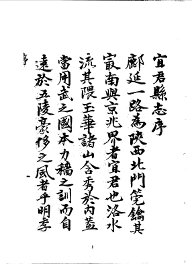 宜君縣志序
鄜延一路為陝西北門筦鑰其
最南與京兆界者宜君也洛水
流其隈玉華諸山含秀於內蓋
當用武之國本力穡之訓而自
遠於五陵豪侈之風者乎明季